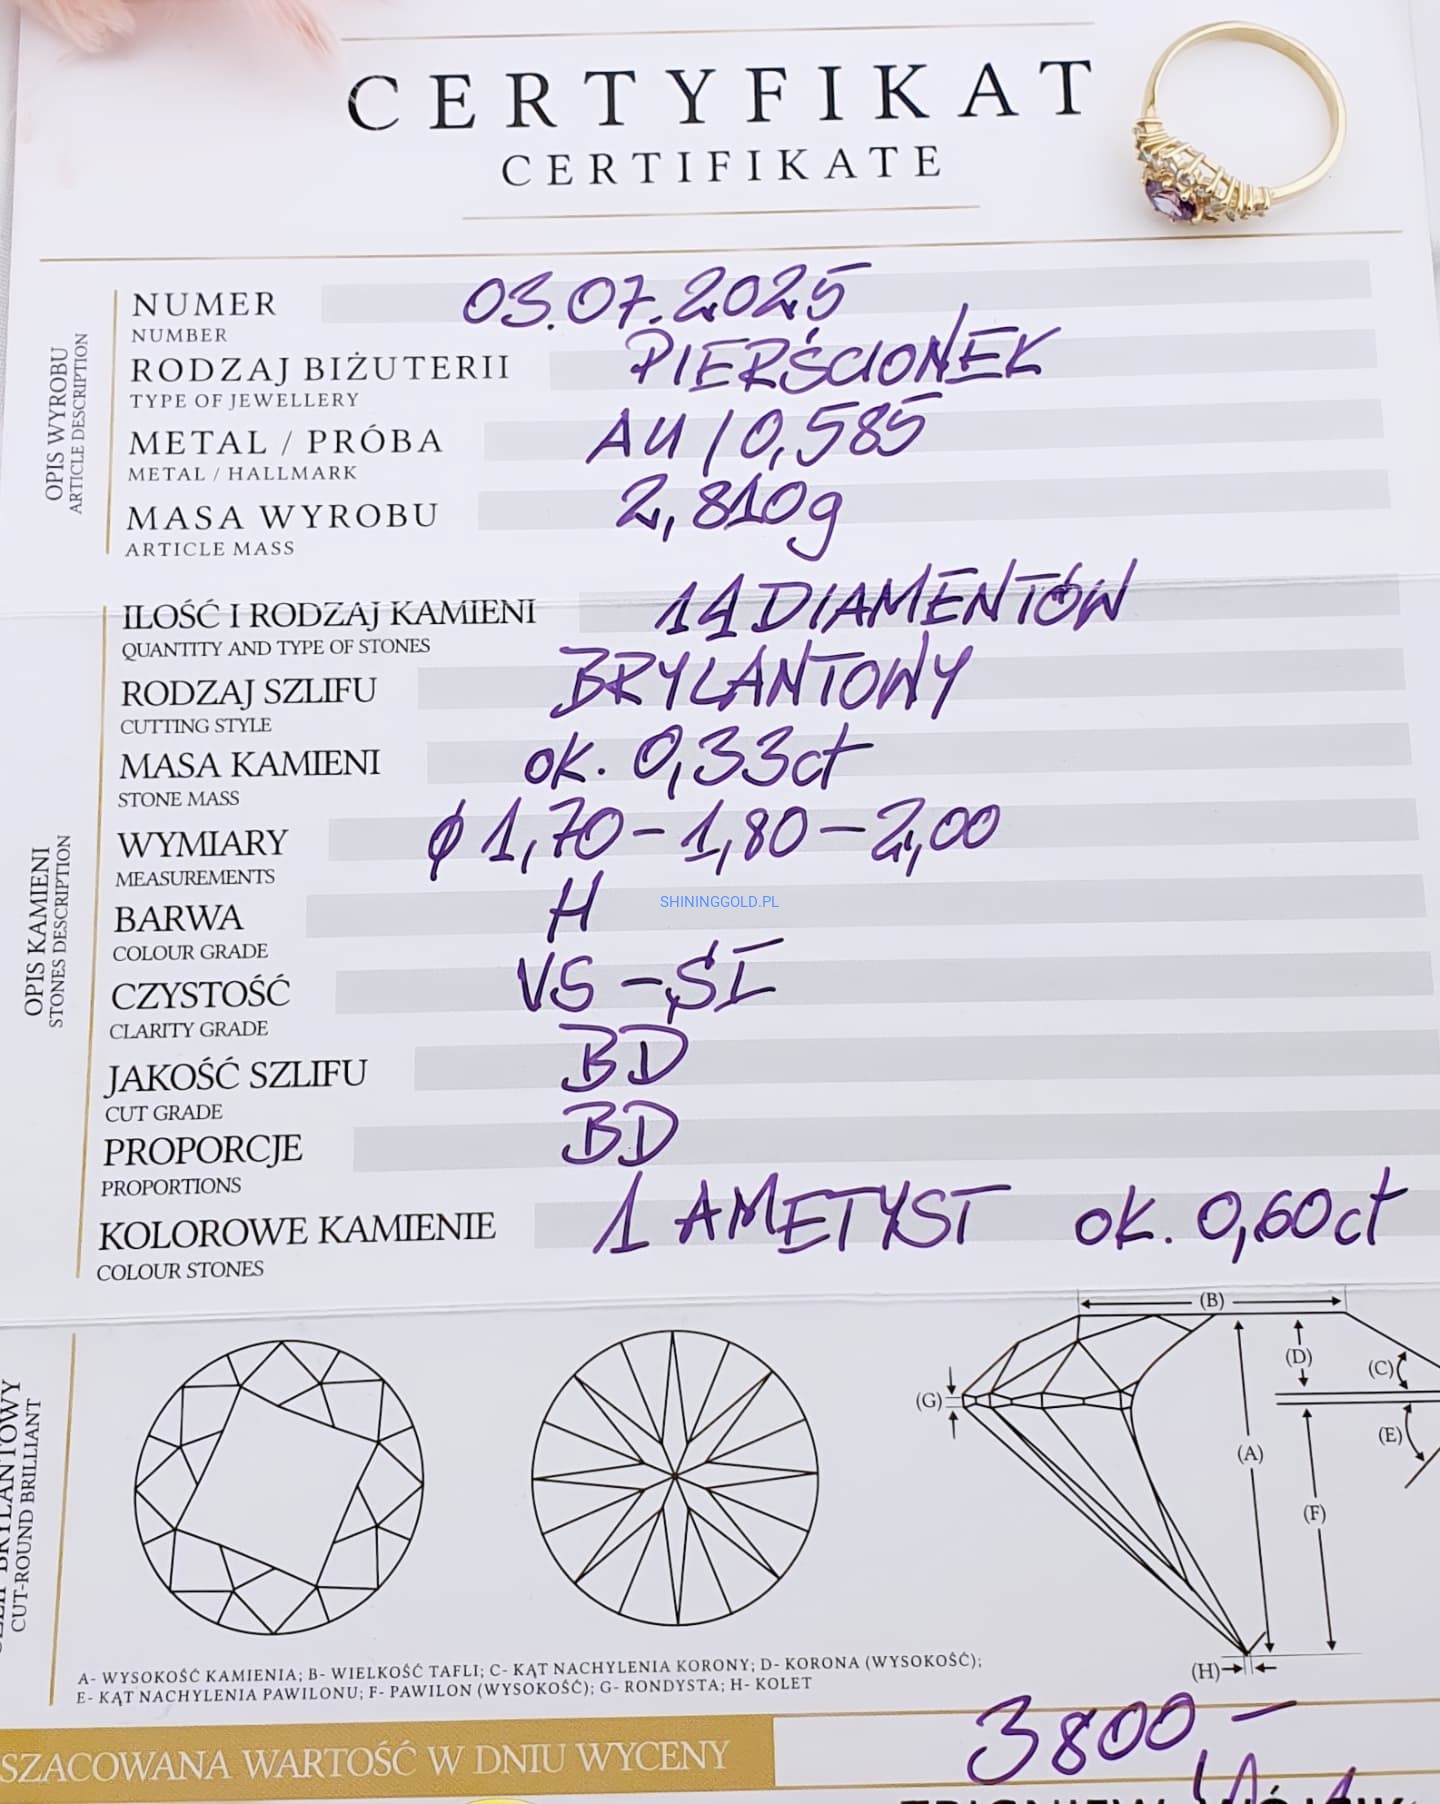 CERTYFIKAT
CERTIFIKATE
OPIS WYROBU
ARTICLE DESCRIPTION
NUMER 03.07.2025
NUMBER
RODZAJ BIŻUTERII PIERŚCIONEK
TYPE OF JEWELLERY
METAL / PRÓBA AU / 0,585
METAL / HALLMARK
MASA WYROBU 2,810g
ARTICLE MASS
OPIS KAMIENI
STONES DESCRIPTION
ILOŚĆ I RODZAJ KAMIENI 14 DIAMENTÓW
QUANTITY AND TYPE OF STONES
RODZAJ SZLIFU BRYLANTOWY
CUTTING STYLE
MASA KAMIENI ok. 0,33ct
STONE MASS
WYMIARY ϕ 1,70-1,80-2,00
MEASUREMENTS
BARWA H
COLOUR GRADE
SHININGGOLD.PL
CZYSTOŚĆ VS-SI
CLARITY GRADE
JAKOŚĆ SZLIFU BD
CUT GRADE
PROPORCJE BD
PROPORTIONS
KOLOROWE KAMIENIE 1 AMETYST ok. 0,60ct
COLOUR STONES
BRYLANTOWY
CUT-ROUND BRILLIANT
(B)
(D)
(C)
(G)
(E)
(A)
(F)
(H)
A- WYSOKOŚĆ KAMIENIA; B- WIELKOŚĆ TAFLI; C- KĄT NACHYLENIA KORONY; D- KORONA (WYSOKOŚĆ);
E- KĄT NACHYLENIA PAWILONU; F- PAWILON (WYSOKOŚĆ); G- RONDYSTA; H- KOLET
SZACOWANA WARTOŚĆ W DNIU WYCENY 3800-